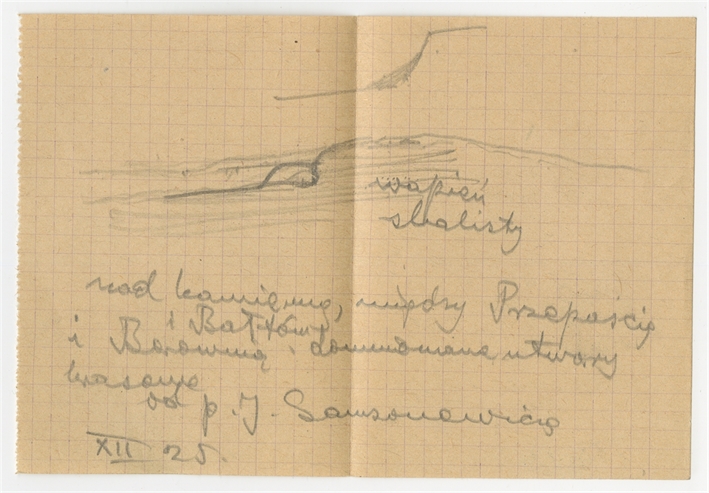 wapień
skalisty
nad Kamienną, między Przepaścią
i Bałtowem
i Borownią domniemane utwory
krasowe
od p. J. Samsonowicza
XII 25.